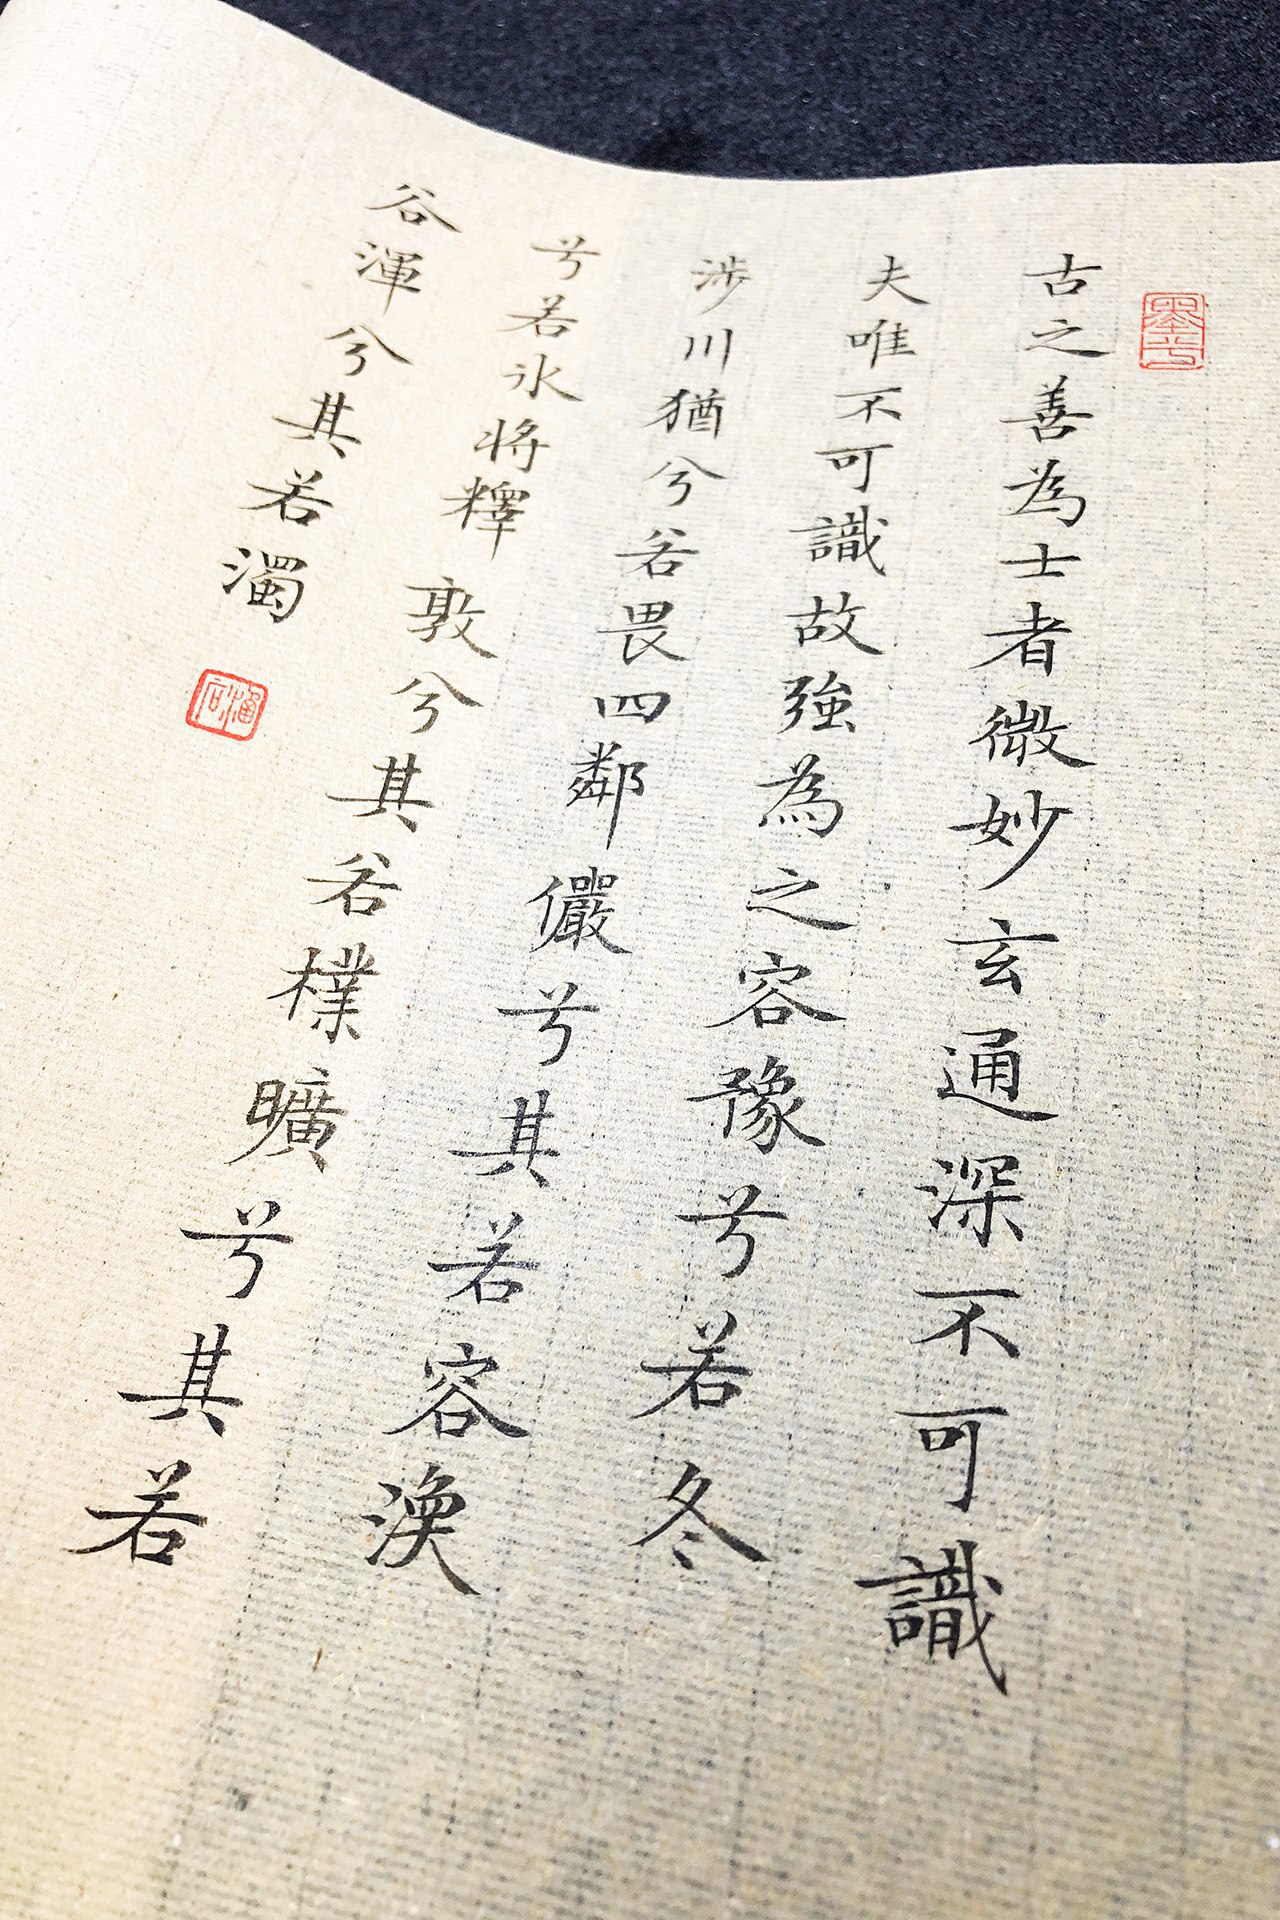 古之善為士者微妙玄通深不可識
夫唯不可識故強為之容豫兮若冬
涉川猶兮若畏四鄰儼兮其若容渙
兮若氷将釋敦兮其若樸曠兮其若
谷渾兮其若濁